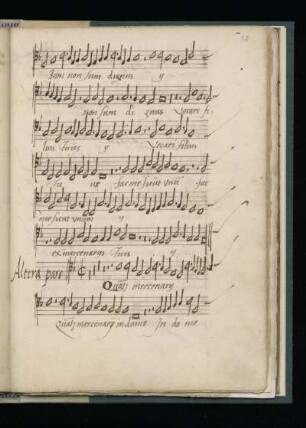 Iam non sum dignus y
non sum dignus vocari fi
lius tuus y vocari filius
tu us fac me sicut unū fac
me sicut unum y
ex mercenarys tuis y
Altera pars
Quāti mercenary
Quāti mercenary in domo In do mo